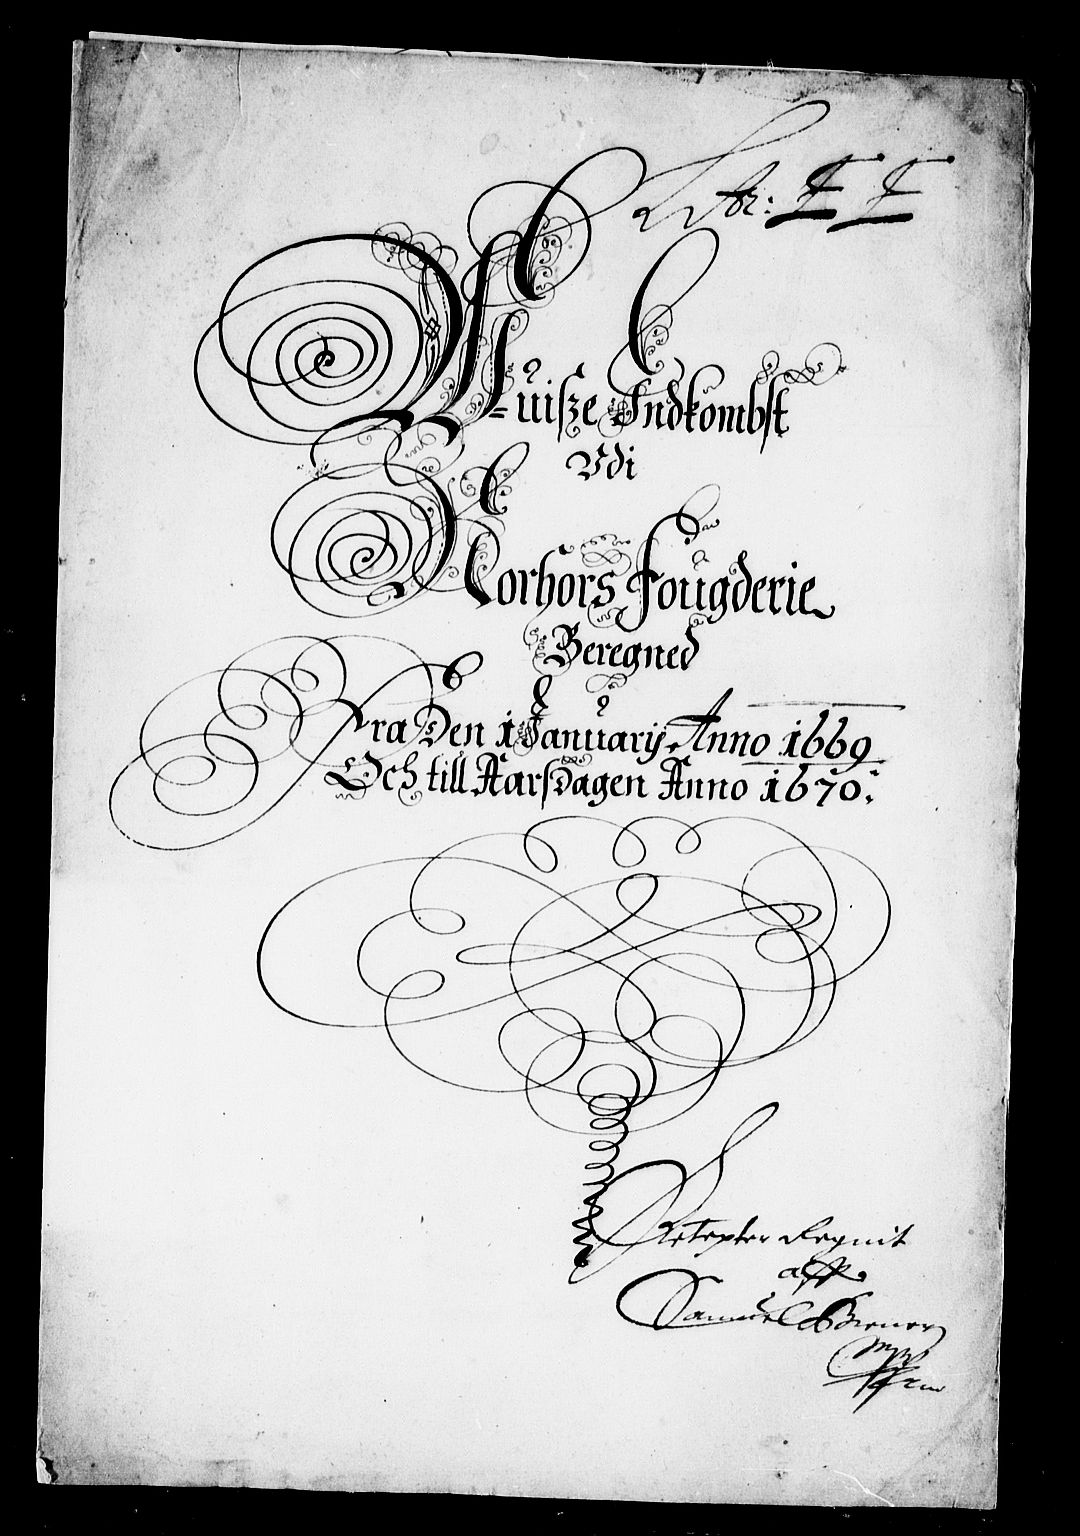 Wuisze Indkombst
Vdi
Norhors Fougderie
Beregned
Fra Den 1 January Anno 1669
Och till Aarsdagen Anno 1670:
aff
Samuel